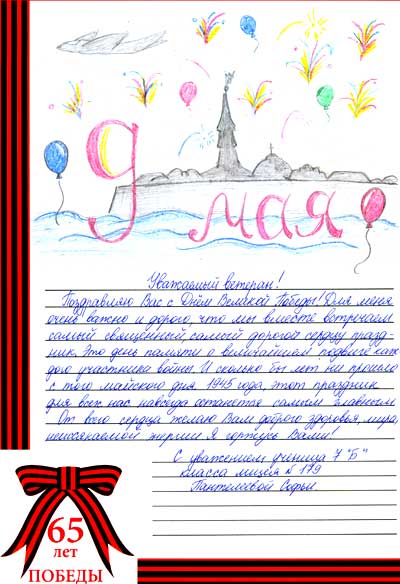 9 мая
Уважаемый ветеран!
Поздравляю Вас с Днём Великой Победы! Для меня
очень важно и дорого, что мы вместе встречаем
самый священный, самый дорогой сердцу празд-
ник. Это день памяти о величайшем подвиге каж
дого участника войны. И сколько бы лет ни прошло
с того майского дня 1945 года, этот праздник
для всех нас навсегда останется самым главным
От всего сердца желаю Вам доброго здоровья, мира,
неиссякаемой энергии. Я горжусь Вами!
С уважением ученица 7 "Б"
класса лицея № 179
Пантелеевой Софьи.
65
лет
ПОБЕДЫ